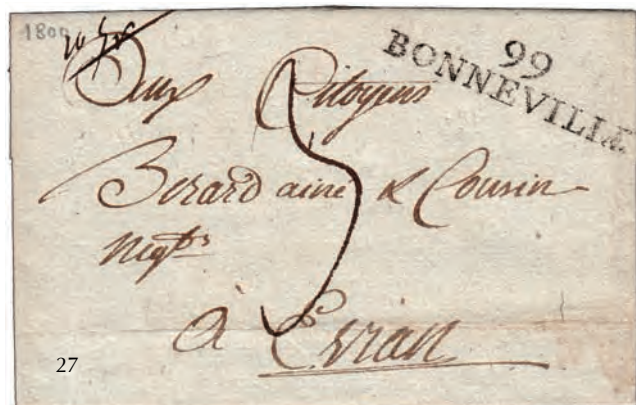 1800
99
BONNEVILLE
Aux Citoyens
Berard ainé & Cousin
Negts
3
à Evian
27